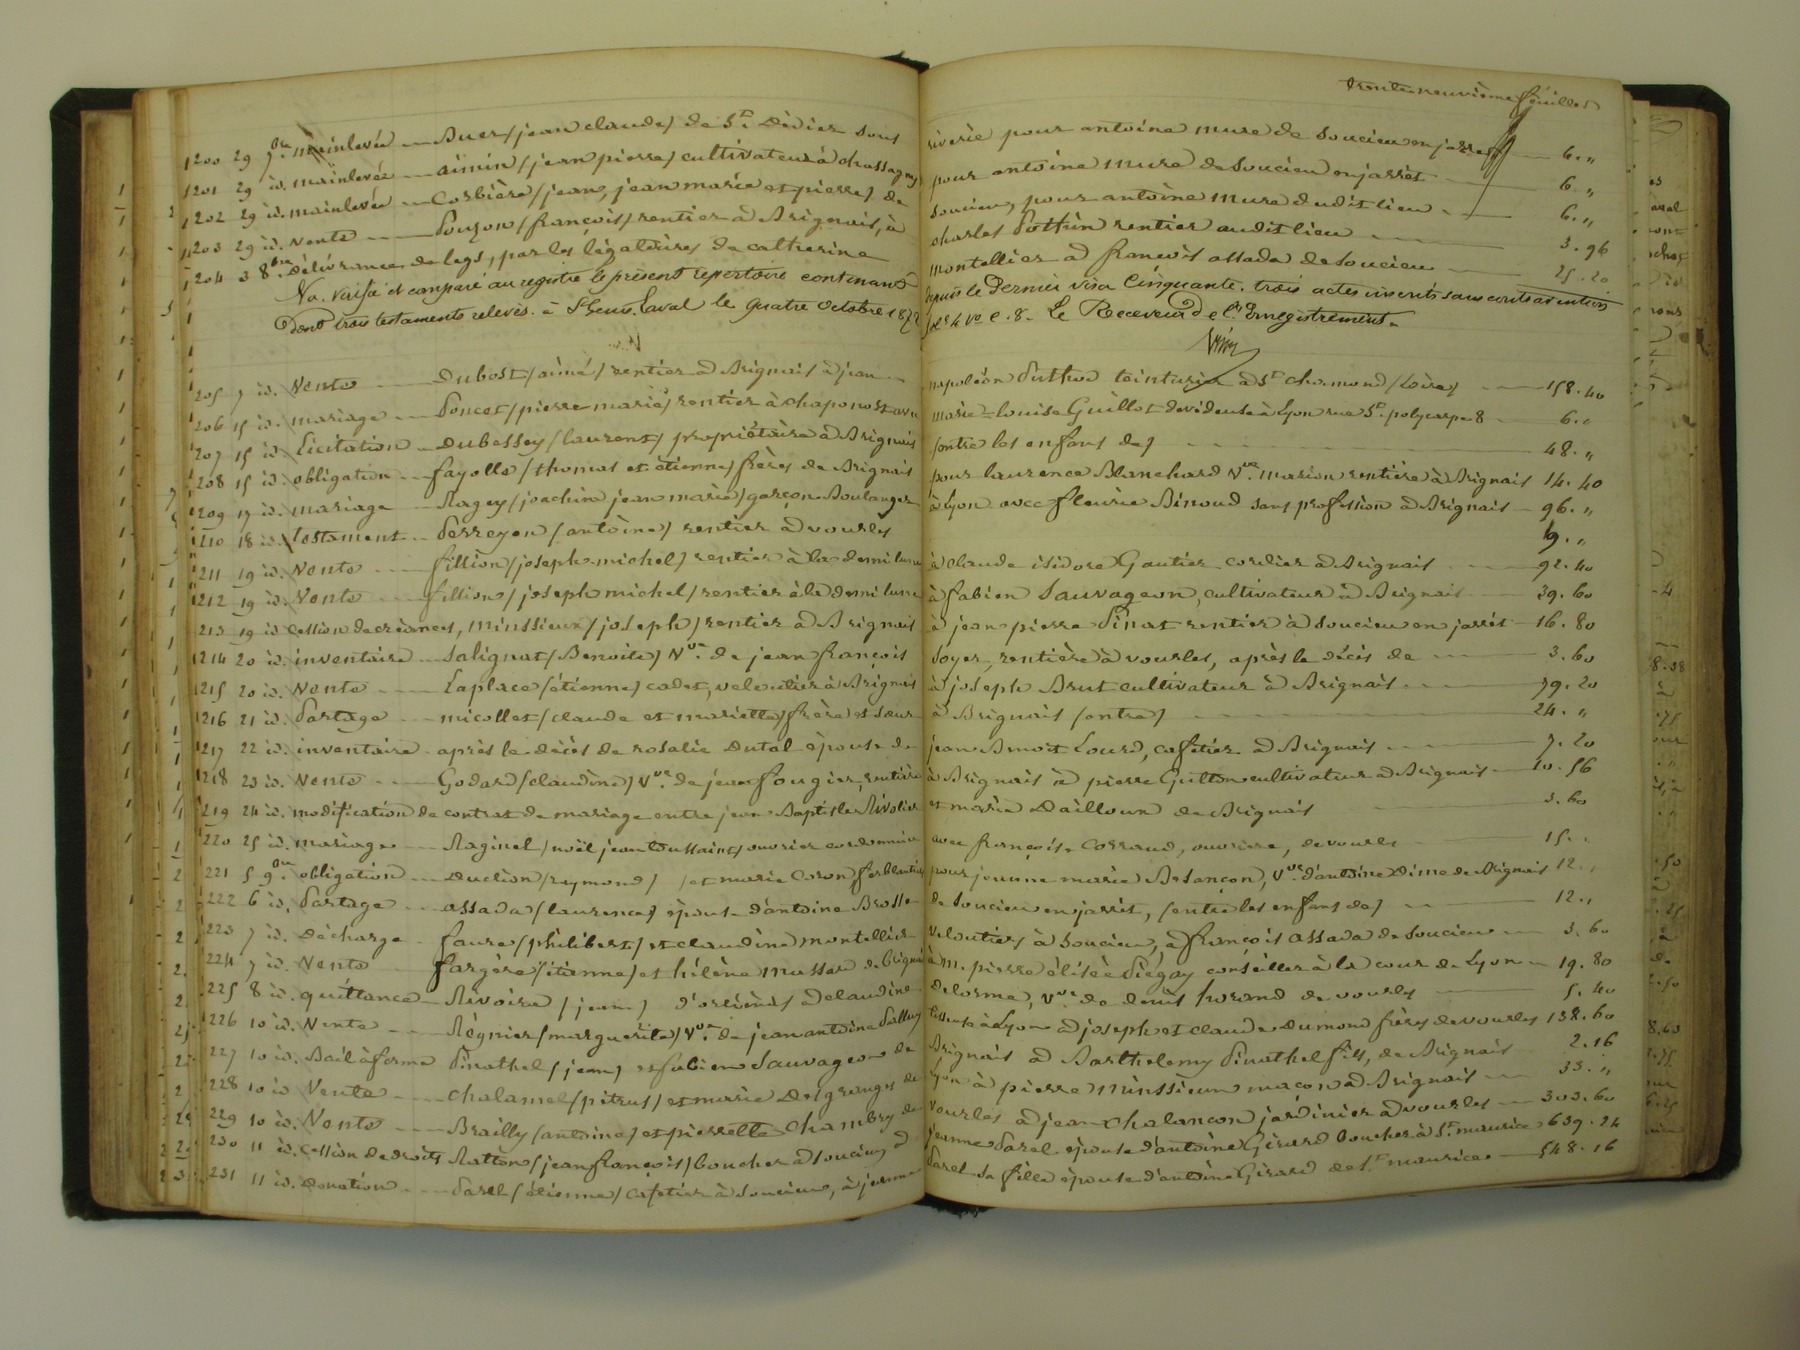 trente neuvième feuillet
1200 29 7bre mainlevée — Buer (jean claude) de St. Didier sous riverie pour antoine mure de Soucieu en jarrest — 6. "
1201 29 id. mainlevée — aimin (jean pierre) cultivateur à chassagny pour antoine mure de Soucieu en jarrêt — 6 "
1202 29 id. mainlevée — Corbière (jean, jean marie et pierre) de Soucieu, pour antoine mure dudit lieu — 6. "
1203 29 id. Vente — Pouzon (françois) rentier à Brignais, à charles Pothin rentier audit lieu — 3. 96
1204 3 8bre Délivrance de legs, par les légataires de catherine montellier à françois assada de Soucieu — 25. 20
Vu, vérifié et comparé au registre le présent répertoire contenant depuis le Dernier visa Cinquante-trois actes inscrits sans contravention
Dont trois testaments relevés. à St Genis Laval le quatre Octobre 1872 fo 4 vo c. 8. Le Receveur de l'Enregistrement.
205 7 id. Vente — Dubost (aimé) rentier à Brignais à jean napoléon Duthod teinturier à St chamond (Loire) — 158. 40
206 15 id. mariage — Poncet (pierre marie) rentier à chaponost avec marie-louise Guillot dévideuse à Lyon rue St. polycarpe 8 — 6. "
207 15 id. Licitation — Dubessey (laurent) propriétaire à Brignais (entre les enfans de) — 48. "
208 15 id. obligation — fayolle (thomas et étienne) frères de Brignais pour laurence Blanchard Vve. marion rentière à Brignais 14. 40
209 17 id. mariage — Ragey (joachim jean marie) garçon Boulanger à Lyon avec fleurie Binoud sans profession à Brignais — 96. "
210 18 id. testament — Perreyon (antoine) rentier à vourles 9. "
211 19 id. Vente — fillion (joseph michel) rentier à la demi lune à claude isidore Gautier cordier à Brignais — 92. 40
1212 19 id. Vente — fillion (joseph michel) rentier à la demi lune à fabien Sauvageon, cultivateur à Brignais — 39. 60
213 19 id cession de créances, minssieux (joseph) rentier à Brignais à jean pierre Pinat rentier à Soucieu en jarrêt — 16. 80
1214 20 id. inventaire — Salignat (Benoite) Vve. de jean françois Soyer, rentière à vourles, après le décès de — 3. 60
1215 20 id. Vente — Laplace (étienne) cadet, veloutier à Brignais à joseph Brut cultivateur à Brignais — 79. 20
1216 21 id. Partage — micollet (claude et mariette) frère et sœur à Brignais (entre) — 24. "
1217 22 id. inventaire — après le décès de rosalie Dutal épouse de jean Benoit Lourd, cafetier à Brignais — 7. 20
1218 23 id. Vente — Godard (claudine) Vve. de jean fougier, rentière à Brignais à pierre Gutton cultivateur à Brignais — 10. 56
219 24 id. modification de contrat de mariage entre jean Baptiste Rivolier et marie Dailloun de Brignais — 3. 60
220 25 id. mariage — Raginel (noël jean toussaint) ouvrier cordonnier avec françoise Corraud, ouvrière, de vourles — 15. "
221 5 9bre obligation — Duclion (reymond) (et marie Coron) ferblantier pour jeanne marie Besançon, Vve. d'antoine Dime de Brignais 12. "
222 6 id. Partage — assada (laurence) épouse d'antoine Brosse de Soucieu en jarrêt, (entre les enfans de) — 12. "
223 7 id. Décharge — faure (philibert) et claudine montellier veloutiers à Soucieu, à françois assada de Soucieu — 3. 60
224 7 id. Vente — fargère (étienne) et hélène mussard de Brignais à m. pierre élisée Piégay conseiller à la cour de Lyon — 19. 80
225 8 id. quittance — Rivoire (jean) d'orliénas à claudine delorme, Vve de denis horand de vourles — 5. 40
226 10 id. Vente — Régnier (marguerite) Vve. de jean antoine Palluy tisseuse à Lyon à joseph et claude Dumond frères de vourles 138. 60
227 10 id. Bail à ferme Pinathel (jean) et fabien Sauvageon de Brignais à Barthelemy Pinathel fils, de Brignais — 2. 16
228 10 id Vente — chalamel (pétrus) et marie Desgranges de Lyon à pierre minssieux maçon à Brignais — 33. "
229 10 id. Vente — Brailly (antoine) et pierrette Chambry de Vourles à jean chalançon jardinier à vourles — 303. 60
230 11 id. Cession de droits Ratton (jean françois) boucher à Soucieu à jeanne Parel épouse d'antoine Girard boucher à St. maurice 639. 24
231 11 id. Donation — Parel (étienne) cafetier à Soucieu, à jeanne Parel sa fille épouse d'antoine Girard de St. maurice — 548. 16